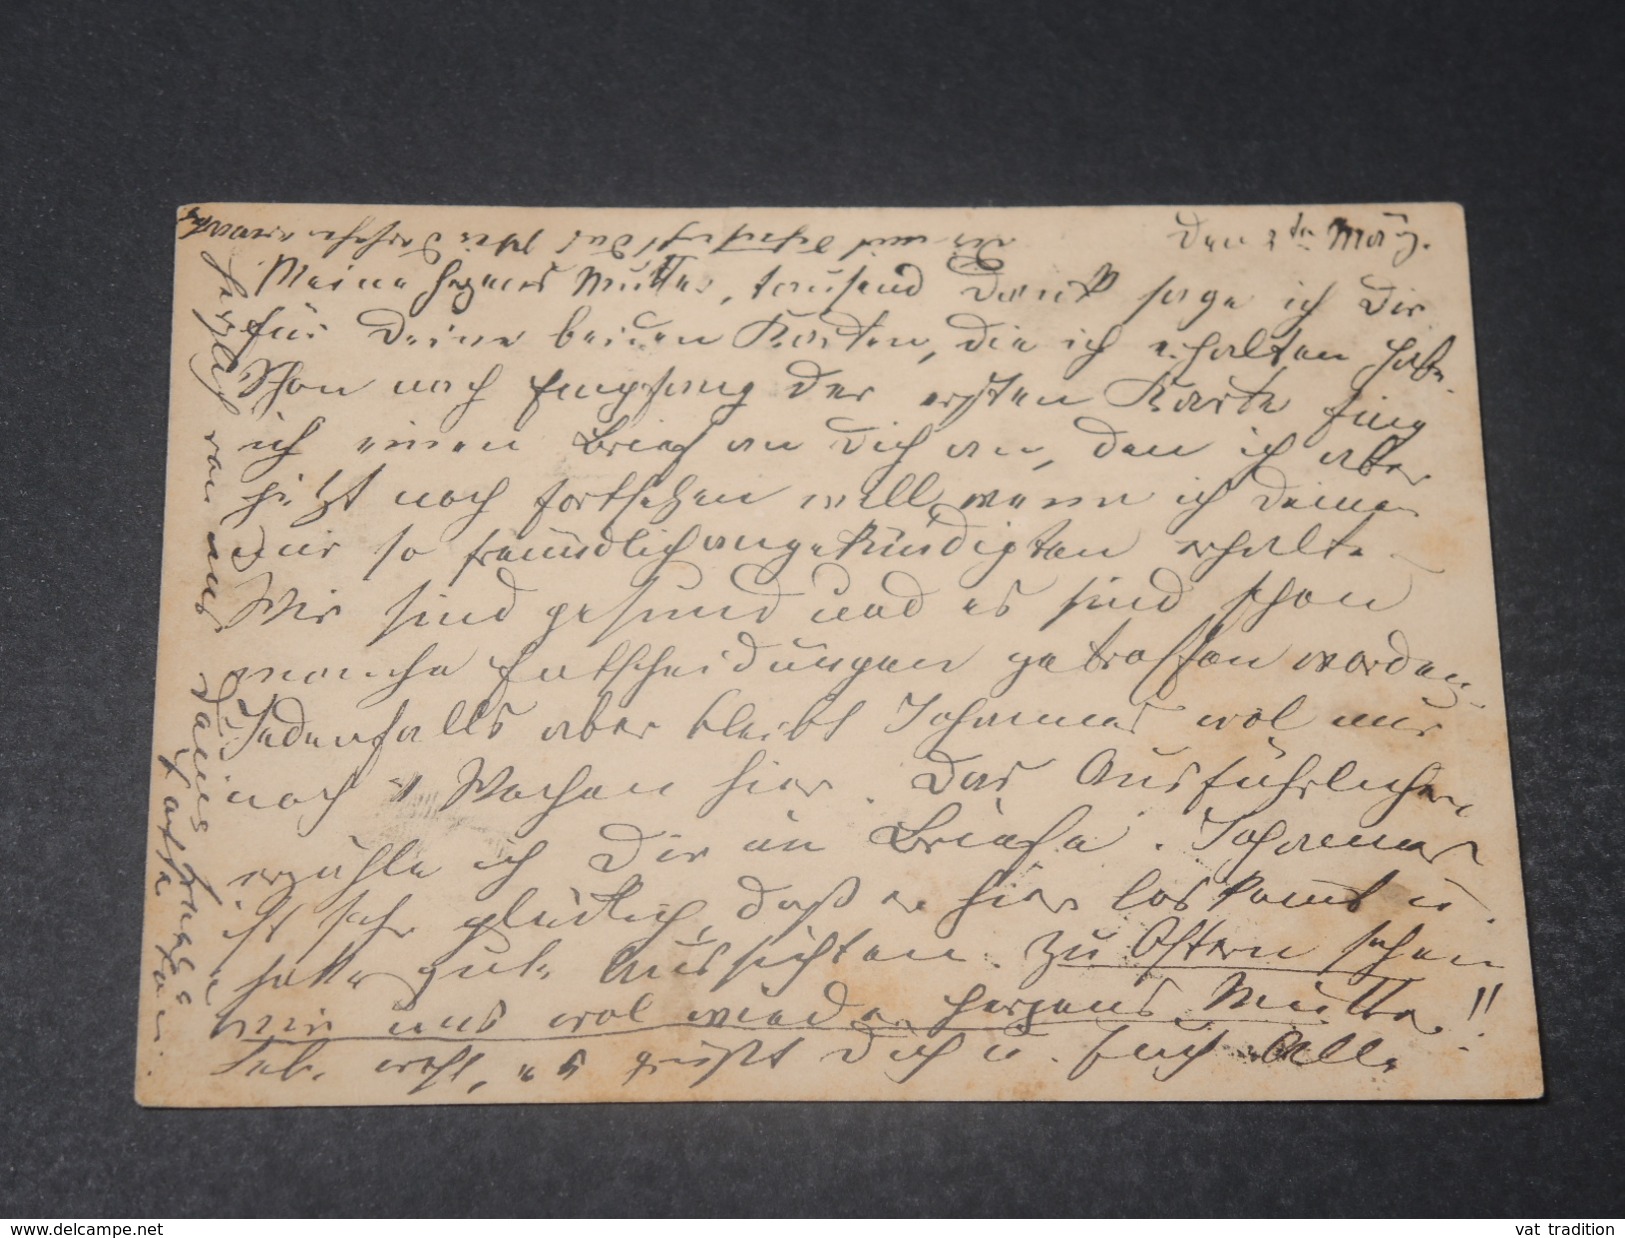 Den 2ten März.
Meine herzens Mutter, tausend Dank sage ich Dir
für Deine beiden Karten, die ich erhalten habe.
Schon nach Empfang der ersten Karte fing
ich einen Brief an Dich an, den ich aber
jetzt noch fortsetzen will, wenn ich Deinen
mir so freundlich angekündigten erhalte.
Wir sind gesund und es sind schon
manche Entscheidungen getroffen worden.
Jedenfalls aber bleibt Johannes wol nur
noch 4 Wochen hier. Das Ausführlichere
erzähle ich Dir im Briefe. Johannes
ist sehr glücklich, daß er hier loskomt u.
hatte gute Aussichten. Zu Ostern sehen
wir uns wol wieder herzens Mutter!!
Leb. wohl, es grüßt Dich u. Euch Alle
herzlich von uns Deine
delcampe.net
vat_tradition